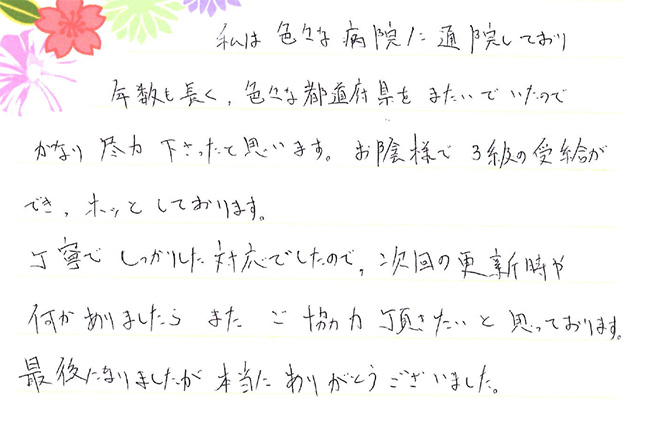 私は色々な病院に通院しており
年数も長く、色々な都道府県をまたいでいたので
かなり尽力下さったと思います。お陰様で3級の受給が
でき、ホッとしております。
丁寧でしっかりした対応でしたので、次回の更新時や
何かありましたら また ご協力頂きたいと思っております。
最後になりましたが本当にありがとうございました。